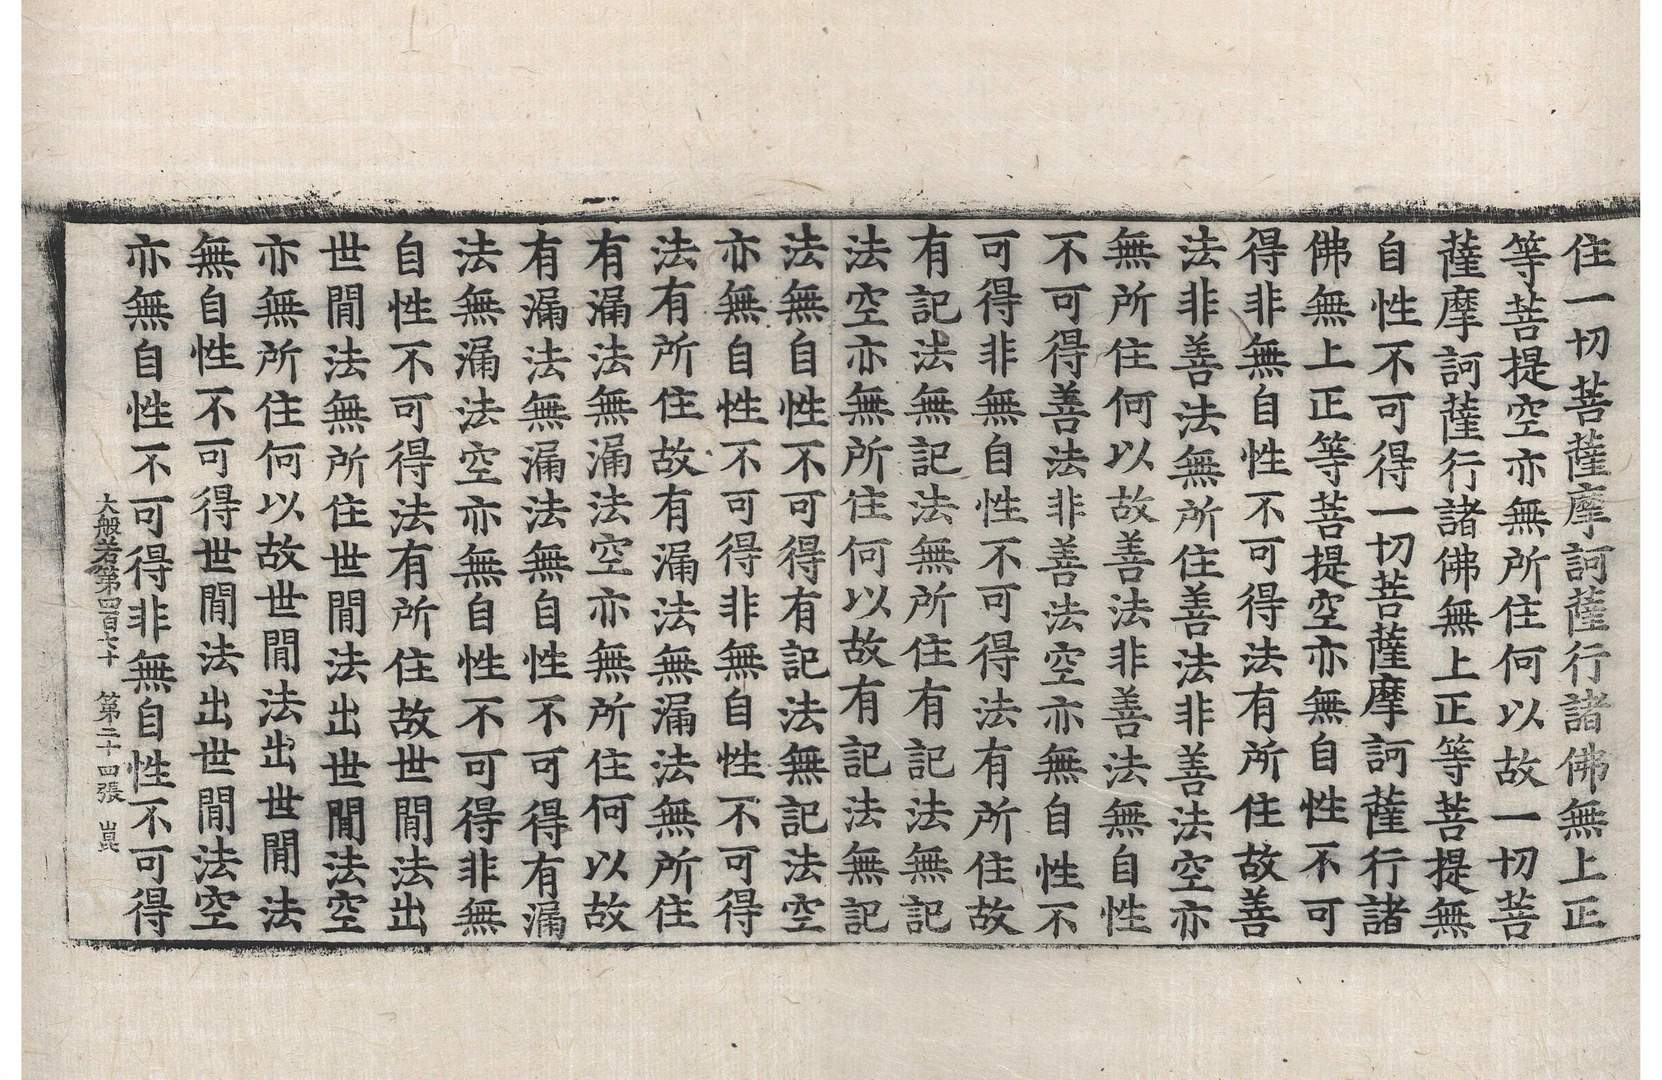 住一切菩薩摩訶薩行諸佛無上正
等菩提空亦無所住何以故一切菩
薩摩訶薩行諸佛無上正等菩提無
自性不可得一切菩薩摩訶薩行諸
佛無上正等菩提空亦無自性不可
得非無自性不可得法有所住故善
法非善法無所住善法非善法空亦
無所住何以故善法非善法無自性
不可得善法非善法空亦無自性不
可得非無自性不可得法有所住故
有記法無記法無所住有記法無記
法空亦無所住何以故有記法無記
法無自性不可得有記法無記法空
亦無自性不可得非無自性不可得
法有所住故有漏法無漏法無所住
有漏法無漏法空亦無所住何以故
有漏法無漏法無自性不可得有漏
法無漏法空亦無自性不可得非無
自性不可得法有所住故世閒法出
世閒法無所住世閒法出世閒法空
亦無所住何以故世閒法出世閒法
無自性不可得世閒法出世閒法空
亦無自性不可得非無自性不可得
大般若第四百六十 第二十四張 崑